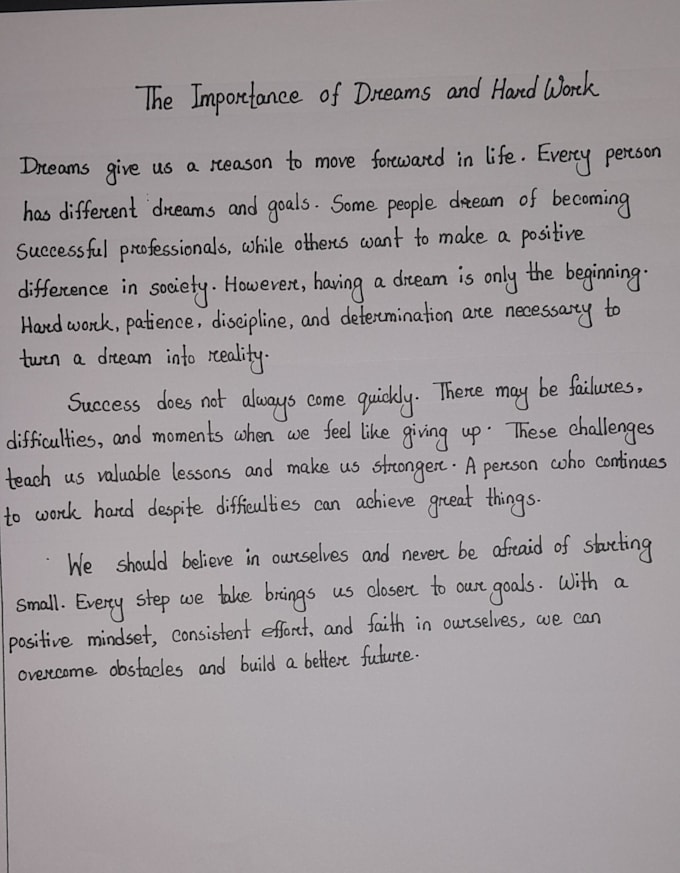 The Importance of Dreams and Hard Work
Dreams give us a reason to move forward in life. Every person
has different dreams and goals. Some people dream of becoming
Successful professionals, while others want to make a positive
difference in society. However, having a dream is only the beginning.
Hard work, patience, discipline, and determination are necessary to
turn a dream into reality.
Success does not always come quickly. There may be failures,
difficulties, and moments when we feel like giving up. These challenges
teach us valuable lessons and make us stronger. A person who continues
to work hard despite difficulties can achieve great things.
We should believe in ourselves and never be afraid of starting
small. Every step we take brings us closer to our goals. With a
positive mindset, consistent effort, and faith in ourselves, we can
overcome obstacles and build a better future.